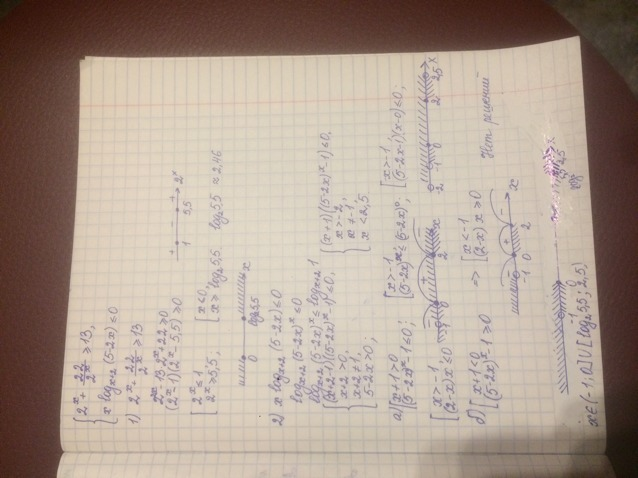 { 2^x + 22/2^x ≥ 13,
x log_{x+2} (5-2x) ≤ 0
1) 2^x + 22/2^x ≥ 13
2^{2x} - 13·2^x + 22 ≥ 0
(2^x - 1)(2^x - 5,5) ≥ 0
+ - +
1 5,5 2^x
[ 2^x ≤ 1
2^x ≥ 5,5,
[ x ≤ 0,
x ≥ log₂5,5
log₂5,5 ≈ 2,46
0 log₂5,5 x
2) x log_{x+2} (5-2x) ≤ 0
log_{x+2} (5-2x)^x ≤ 0
log_{x+2} (5-2x)^x ≤ log_{x+2} 1
{ (x+2-1)((5-2x)^x - 1) ≤ 0,
x+2 > 0,
x+2 ≠ 1,
5-2x > 0;
{ (x+1)((5-2x)^x - 1) ≤ 0,
x > -2,
x ≠ -1,
x < 2,5
а) [ x+1 > 0
(5-2x)^x - 1 ≤ 0;
[ x > -1
(5-2x)^x ≤ (5-2x)^0;
[ x > -1
(5-2x-1)(x-0) ≤ 0;
[ x > -1
(2-x)x ≤ 0
-1 0 2 x
-2 -1 0 2 2,5 x
б) [ x+1 < 0
(5-2x)^x - 1 ≥ 0
⇒ [ x < -1
(2-x)x ≥ 0
- + -
-1 0 2 x
Нет решений
x ∈ (-1; 0] ∪ [log₂5,5; 2,5)